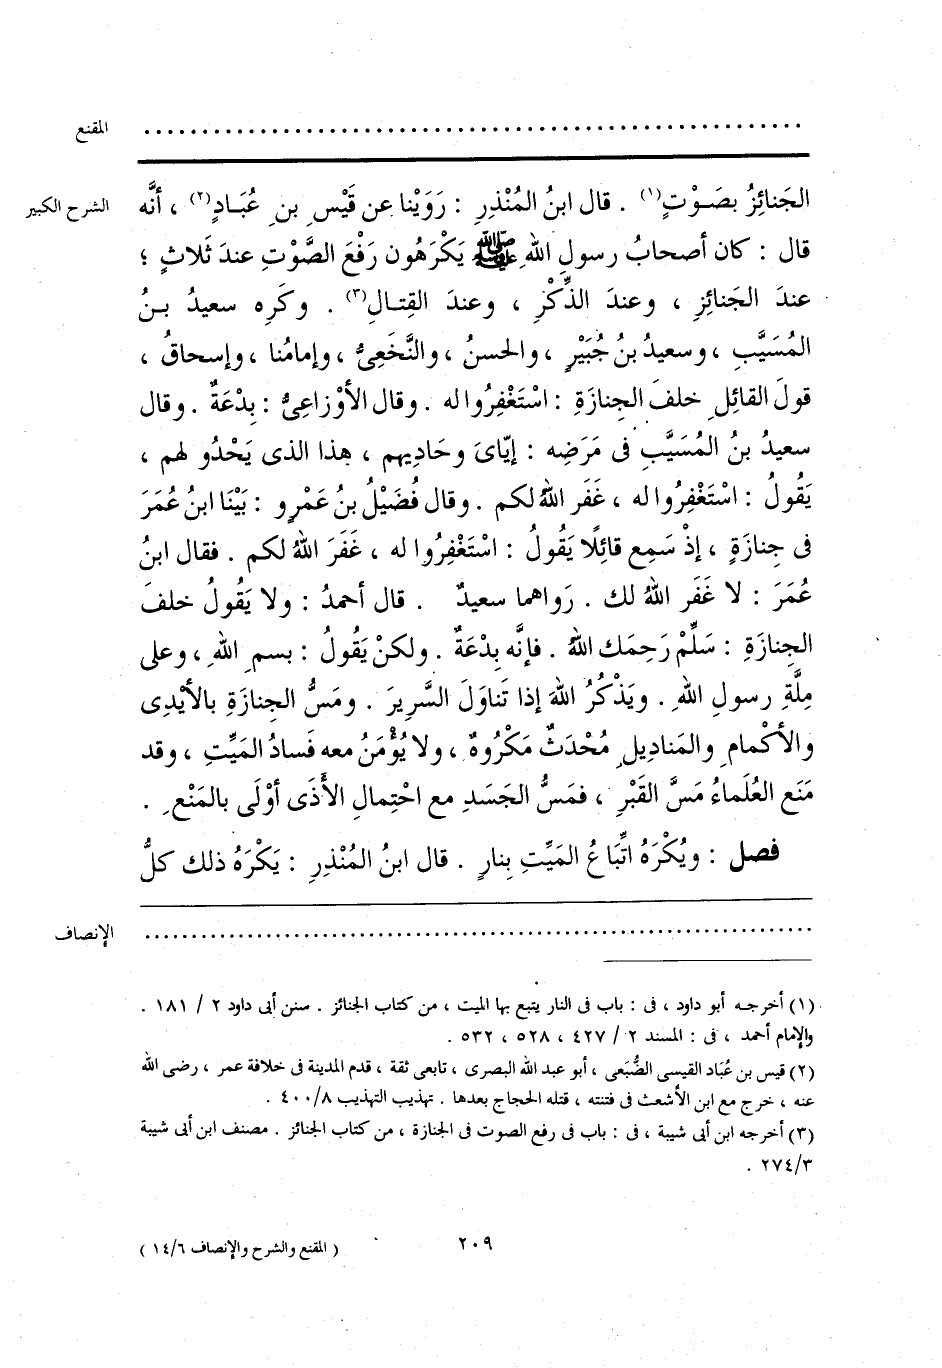 المقنع ..........................................................
الشرح الكبير الجَنائِزُ بصَـوْتٍ(١) . قال ابنُ المُنْذِرِ : رَوَيْنا عن قَيْسِ بنِ عُبَـادٍ(٢) ، أنَّه
قال : كان أصحابُ رسولِ اللهِ ﷺ يَكْرَهُون رَفْعَ الصَّوْتِ عندَ ثَلاثٍ ؛
عندَ الجَنائِزِ ، وعندَ الذِّكْرِ ، وعندَ القِتالِ(٣) . وكَرِه سعيدُ بـنُ
المُسَيَّبِ ، وسعيدُ بنُ جُبَيْرٍ ، والحسنُ ، والنَّخَعِىُّ ، وإمامُنا ، وإسحاقُ ،
قولَ القائِلِ خلفَ الجِنازَةِ : اسْتَغْفِرُوا له . وقال الأوْزاعِىُّ : بِدْعَةٌ . وقال
سعيدُ بنُ المُسَيَّبِ فى مَرَضِه : إيّاىَ وحَادِيهم ، هذا الذى يَحْدُو لهم ،
يَقُولُ : اسْتَغْفِرُوا له ، غَفَر اللهُ لكم . وقال فُضَيْلُ بنُ عَمْرٍو : بَيْنَا ابنُ عُمَرَ
فى جِنازَةٍ ، إذْ سَمِع قائِلًا يَقُولُ : اسْتَغْفِرُوا له ، غَفَرَ اللهُ لكم . فقال ابنُ
عُمَرَ : لا غَفَر اللهُ لك . رَواهما سعيدٌ . قال أحمدُ : ولا يَقُولُ خلفَ
الجِنازَةِ : سَلِّمْ رَحِمَك اللهُ . فإنَّه بِدْعَةٌ . ولكنْ يَقُولُ : بسمِ اللهِ ، وعلى
مِلَّةِ رسولِ اللهِ . ويَذْكُرُ اللهَ إذا تَناوَلَ السَّرِيرَ . ومَسُّ الجِنازَةِ بالأيْدِى
والأكْمامِ والمَنادِيلِ مُحْدَثٌ مَكْرُوهٌ ، ولا يُؤْمَنُ معه فَسادُ المَيِّتِ ، وقد
مَنَع العُلَماءُ مَسَّ القَبْرِ ، فمَسُّ الجَسَدِ مع احْتِمالِ الأَذَى أوْلَى بالمَنْعِ .
فصل : ويُكْرَهُ اتِّبَاعُ المَيِّتِ بِنارٍ . قال ابنُ المُنْذِرِ : يَكْرَهُ ذلك كلُّ
الإنصاف ..........................................................
(١) أخرجه أبو داود ، فى : باب فى النار يتبع بها الميت ، من كتاب الجنائز . سنن أبى داود ٢ / ١٨١ .
والإمام أحمد ، فى : المسند ٢ / ٤٢٧ ، ٥٢٨ ، ٥٣٢ .
(٢) قيس بن عُبَاد القيسى الضُّبَعى ، أبو عبد الله البصرى ، تابعى ثقة ، قدم المدينة فى خلافة عمر ، رضى الله
عنه ، خرج مع ابن الأشعث فى فتنته ، قتله الحجاج بعدها . تهذيب التهذيب ٤٠٠/٨ .
(٣) أخرجه ابن أبى شيبة ، فى : باب فى رفع الصوت فى الجنازة ، من كتاب الجنائز . مصنف ابن أبى شيبة
٢٧٤/٣ .
٢٠٩ ( المقنع والشرح والإنصاف ١٤/٦ )